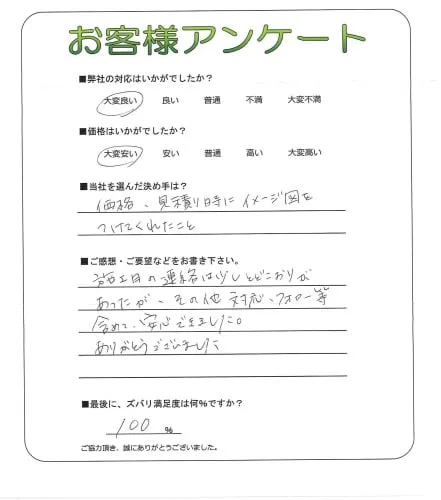 お客様アンケート
■弊社の対応はいかがでしたか?
大変良い 良い 普通 不満 大変不満
■価格はいかがでしたか?
大変安い 安い 普通 高い 大変高い
■当社を選んだ決め手は?
価格、見積り時にイメージ図を
つけてくれたこと
■ご感想・ご要望などをお書き下さい。
の連絡は少しとどこおりが
あったが、その他 対応、フォロー等
含めて、安心できました。
ありがとうございました
■最後に、ズバリ満足度は何%ですか?
100 %
ご協力頂き、誠にありがとうございました。